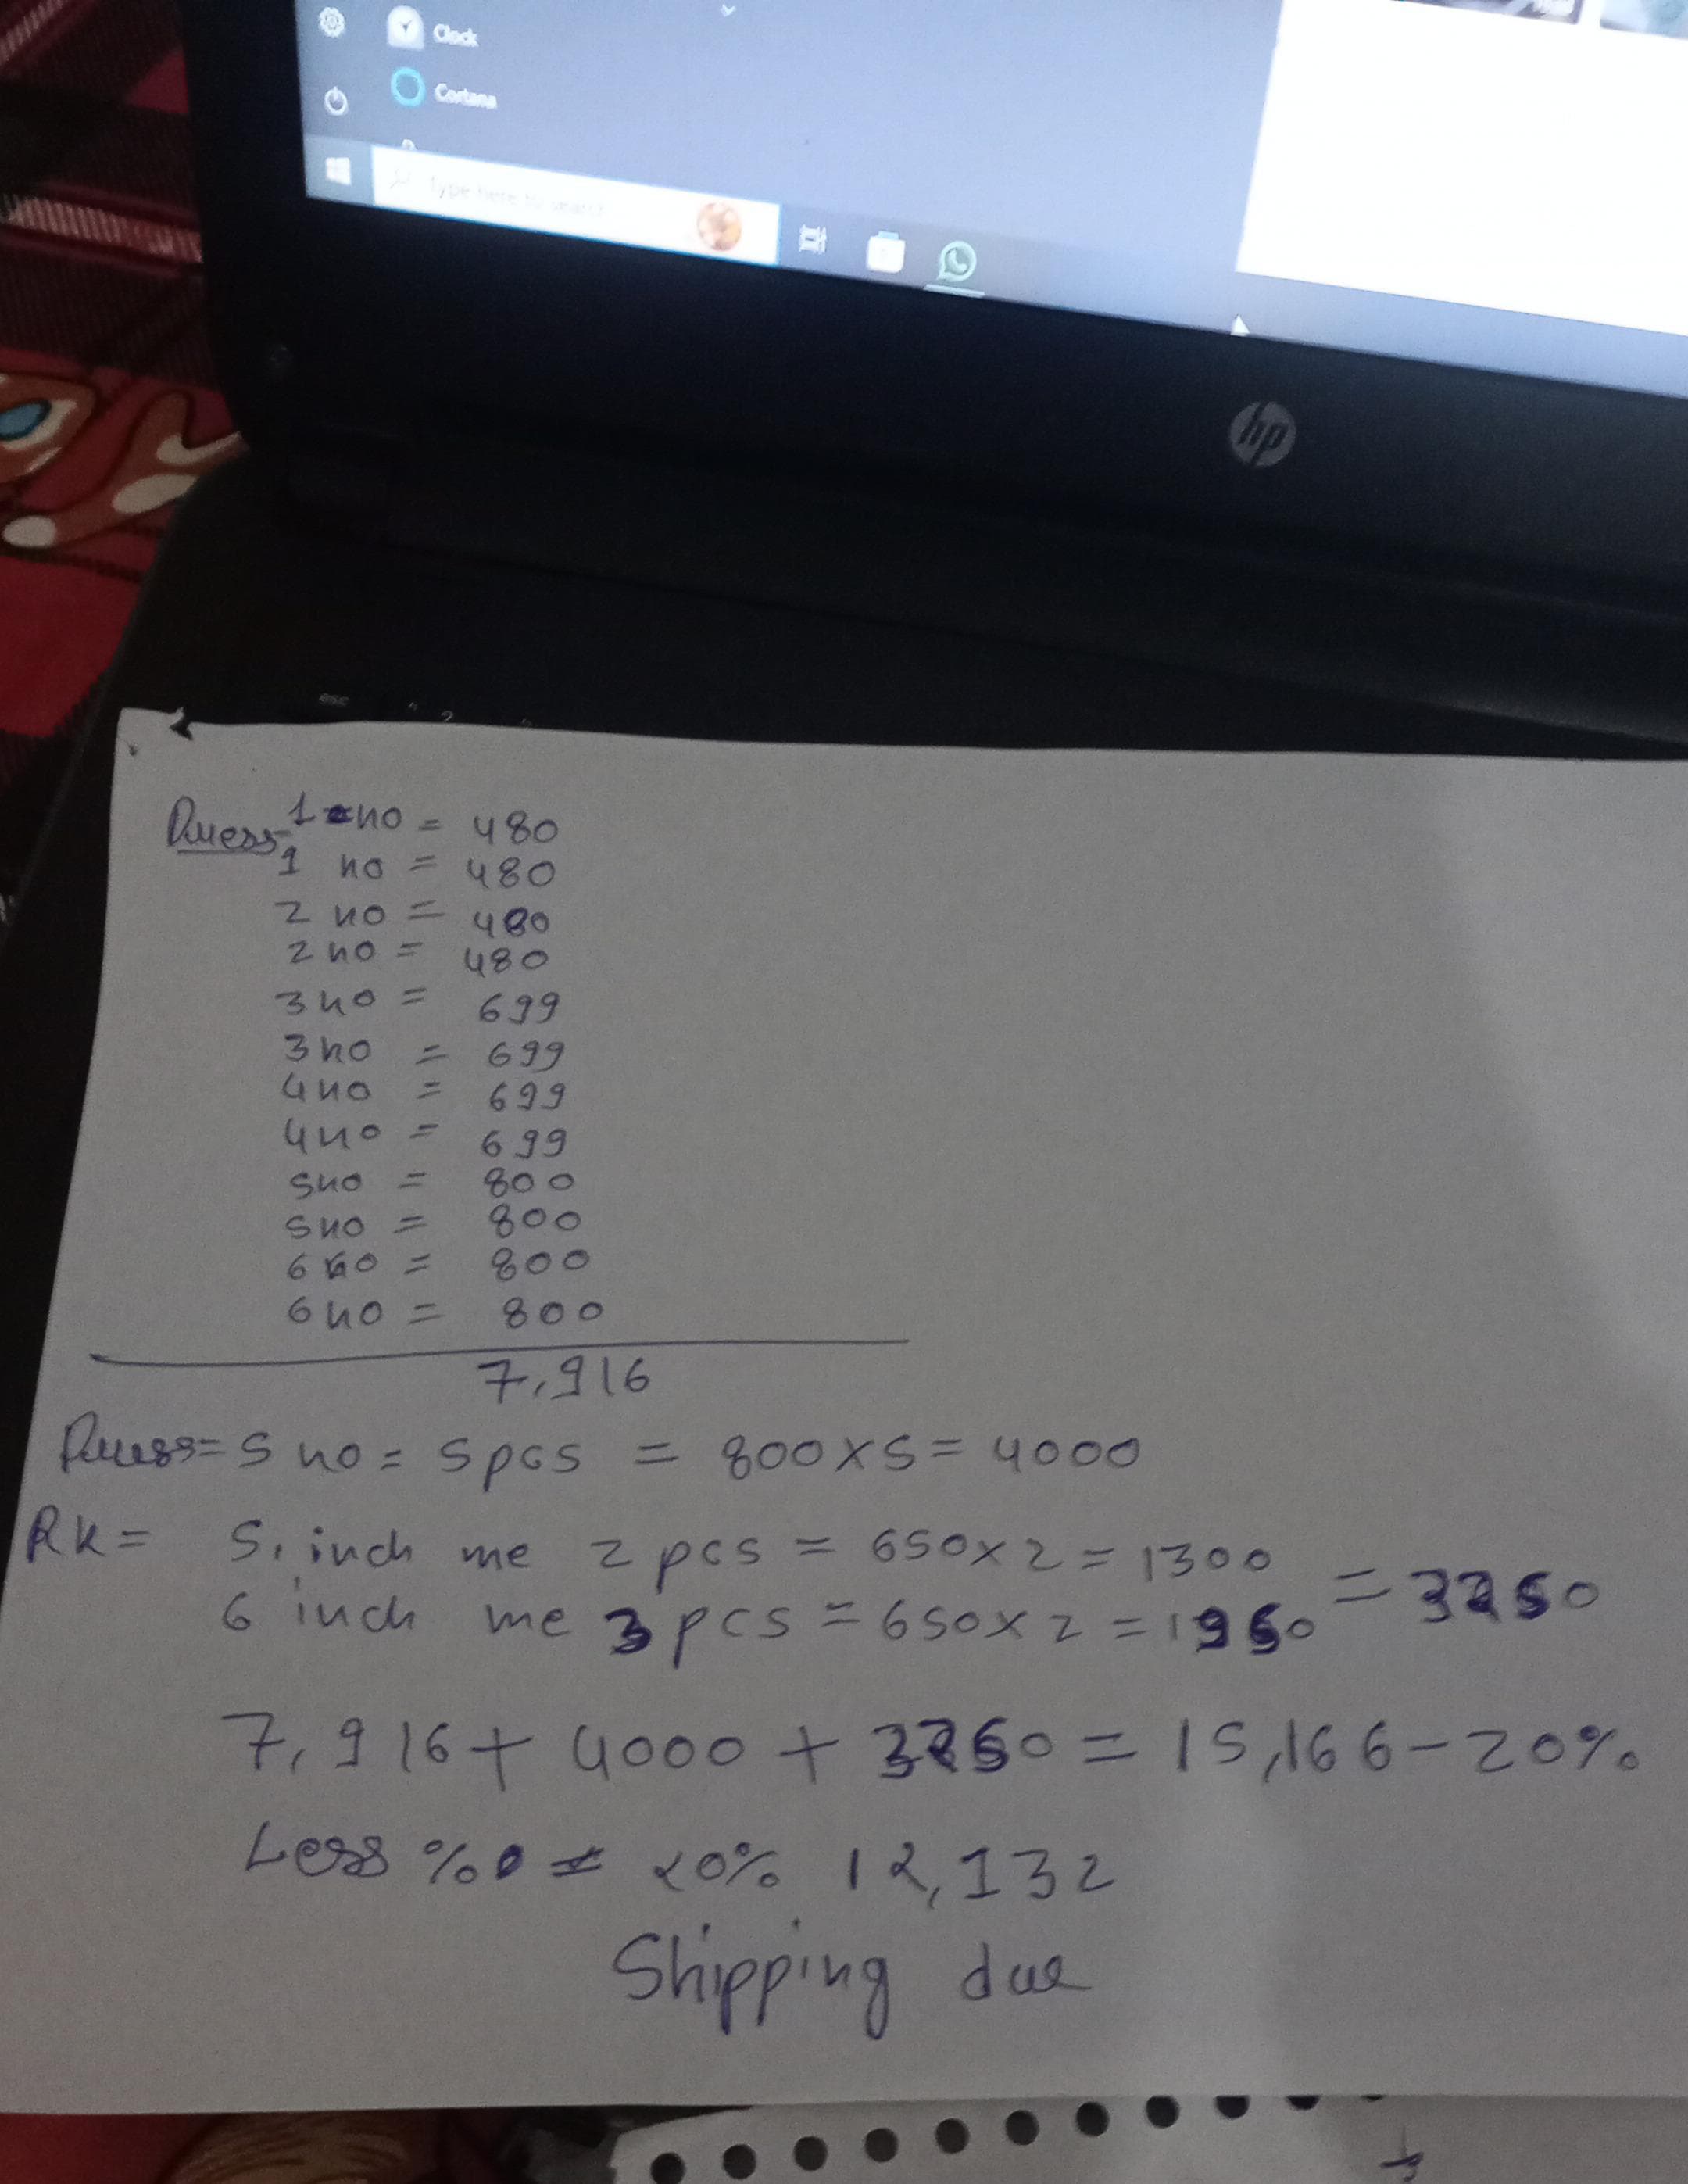 Clock
Cortana
Type here to search
hp
esc
Dress 1 no = 480
1 no = 480
2 no = 480
2 no = 480
3 no = 699
3 no = 699
4 no = 699
4 no = 699
5 no = 800
5 no = 800
6 no = 800
6 no = 800
7,916
Dress = 5 no = 5 pcs = 800 x 5 = 4000
RK = 5, inch me 2 pcs = 650 x 2 = 1300
6 inch me 3 pcs = 650 x 2 = 1950 = 3250
7,916 + 4000 + 3250 = 15,166 - 20%
Less % = 20% 12,132
Shipping due